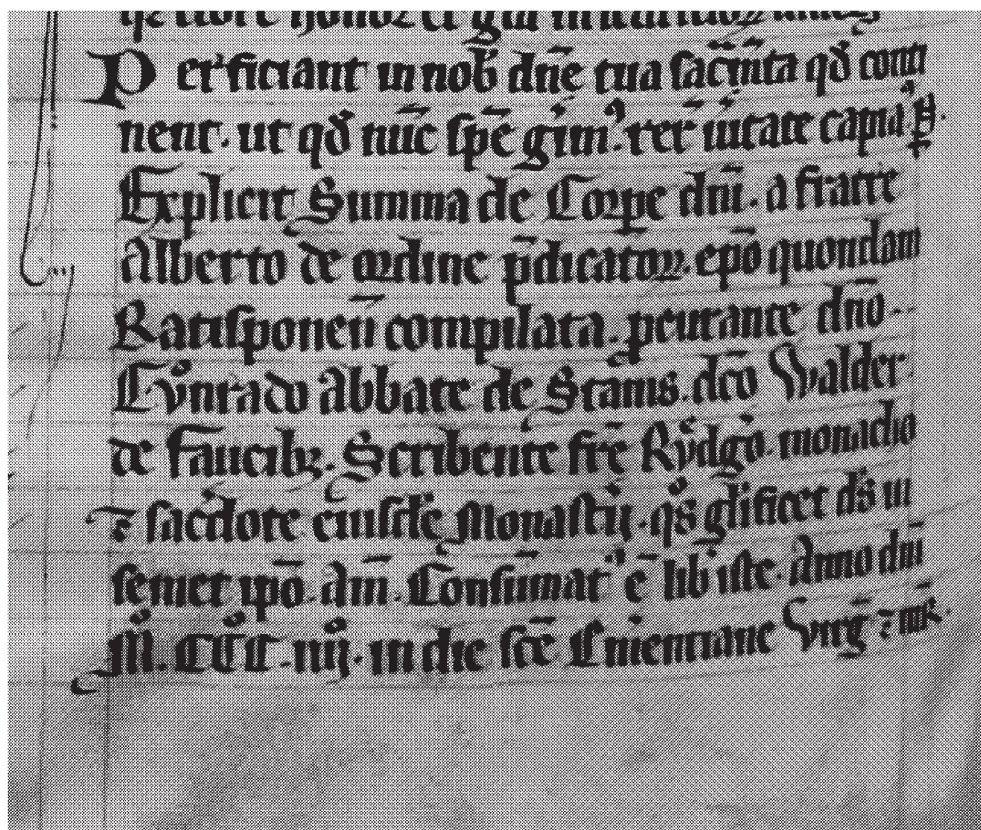 honor et gl'ia in secula seculorum amen
P erficiant in nob̄ dn̄e tua sac̄m̄ta qd̄ conti
nent. ut qd̄ nūc sp̄e gerim' rer̄ ueritate capiam'
Explicit Summa de Corp̄e dn̄i. a fratre
Alberto de ordine p̄dicatoꝝ. ep̄o quondam
Ratisponen̄ compilata. procurante dn̄o
Cůnrado Abbate de Stams. dc̄o Walder
de Faucibꝫ. Scribente fr̄e Růdg̊o. monacho
⁊ sac̄dote eiusdē Monast'ij. q̊s gl'ificet ds̄ in
semet ip̄o. am̄. Consumat' ē lib iste. Anno dn̄i
M̊. CCC̊. iiij. in die sc̄e Emerentiane Virḡ ⁊ mr̄.